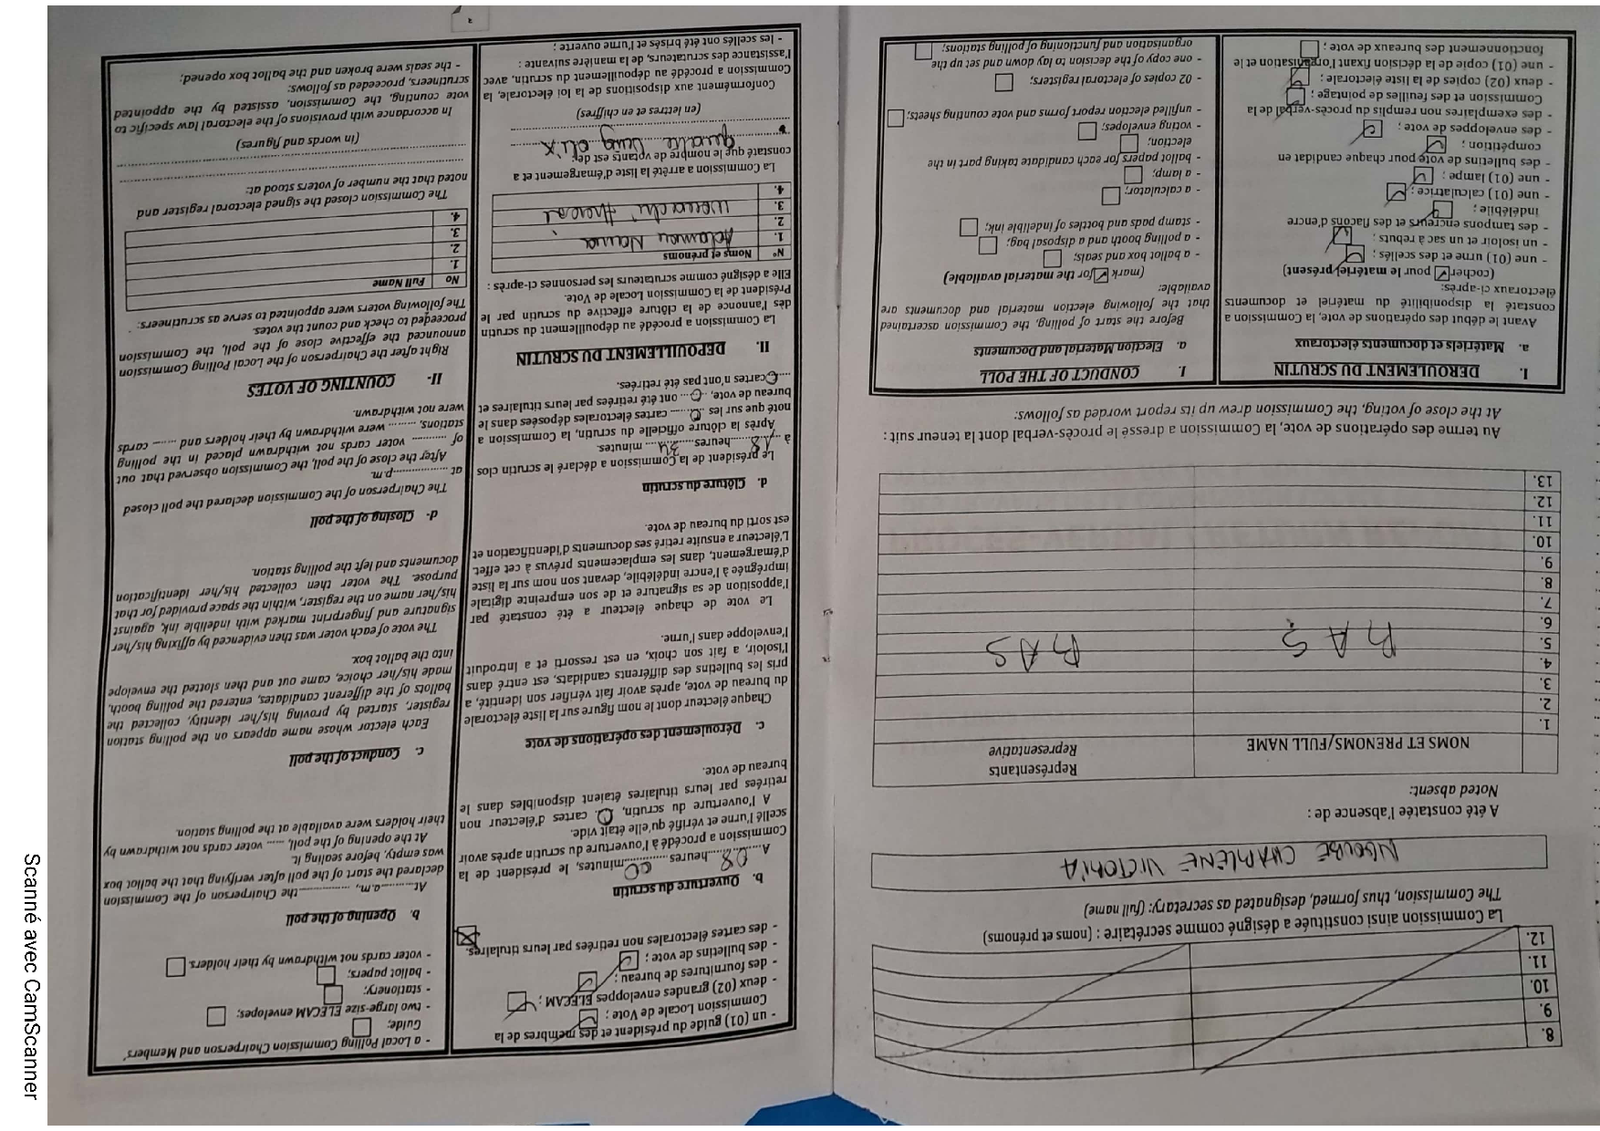 8.
9.
10.
11.
12.
La Commission ainsi constituée a désigné comme secrétaire : (noms et prénoms)
The Commission, thus formed, designated as secretary: (full name)
NGOUBE CHARLENE VICTORIA
A été constatée l'absence de :
Noted absent:
NOMS ET PRENOMS/FULL NAME
Représentants
Representative
1.
2.
3.
4.
5.
6.
7.
8.
9.
10.
11.
12.
13.
RAS RAS
Au terme des opérations de vote, la Commission a dressé le procès-verbal dont la teneur suit :
At the close of voting, the Commission drew up its report worded as follows:
I. DEROULEMENT DU SCRUTIN
a. Matériels et documents électoraux
Avant le début des opérations de vote, la Commission a
constaté la disponibilité du matériel et documents
électoraux ci-après:
(cocher pour le matériel présent)
- une (01) urne et des scellés ;
- un isoloir et un sac à rebuts ;
- des tampons encreurs et des flacons d'encre
indélébile ;
- une (01) calculatrice ;
- une (01) lampe ;
- des bulletins de vote pour chaque candidat en
compétition ;
- des enveloppes de vote ;
- des exemplaires non remplis du procès-verbal de la
Commission et des feuilles de pointage ;
- deux (02) copies de la liste électorale ;
- une (01) copie de la décision fixant l'organisation et le
fonctionnement des bureaux de vote ;
I. CONDUCT OF THE POLL
a. Election Material and Documents
Before the start of polling, the Commission ascertained
that the following election material and documents are
available:
(mark for the material available)
- a ballot box and seals;
- a polling booth and a disposal bag;
- stamp pads and bottles of indelible ink;
- a calculator;
- a lamp;
- ballot papers for each candidate taking part in the
election;
- voting envelopes;
- unfilled election report forms and vote counting sheets;
- 02 copies of electoral registers;
- one copy of the decision to lay down and set up the
organisation and functioning of polling stations;
- un (01) guide du président et des membres de la
Commission Locale de Vote ;
- deux (02) grandes enveloppes ELECAM ;
- des fournitures de bureau ;
- des bulletins de vote ;
- des cartes électorales non retirées par leurs titulaires.
b. Ouverture du scrutin
A 08 heures 00 minutes, le président de la
Commission a procédé à l'ouverture du scrutin après avoir
scellé l'urne et vérifié qu'elle était vide.
A l'ouverture du scrutin, 0 cartes d'électeur non
retirées par leurs titulaires étaient disponibles dans le
bureau de vote.
c. Déroulement des opérations de vote
Chaque électeur dont le nom figure sur la liste électorale
du bureau de vote, après avoir fait vérifier son identité, a
pris les bulletins des différents candidats, est entré dans
l'isoloir, a fait son choix, en est ressorti et a introduit
l'enveloppe dans l'urne.
Le vote de chaque électeur a été constaté par
l'apposition de sa signature et de son empreinte digitale
imprégnée à l'encre indélébile, devant son nom sur la liste
d'émargement, dans les emplacements prévus à cet effet.
L'électeur a ensuite retiré ses documents d'identification et
est sorti du bureau de vote.
d. Clôture du scrutin
Le président de la Commission a déclaré le scrutin clos
à 18 heures 34 minutes.
Après la clôture officielle du scrutin, la Commission a
noté que sur les 0 cartes électorales déposées dans le
bureau de vote, 0 ont été retirées par leurs titulaires et
0 cartes n'ont pas été retirées.
II. DEPOUILLEMENT DU SCRUTIN
La Commission a procédé au dépouillement du scrutin
dès l'annonce de la clôture effective du scrutin par le
Président de la Commission Locale de Vote.
Elle a désigné comme scrutateurs les personnes ci-après :
N° Noms et prénoms
1. Adamou
2.
3.
4.
La Commission a arrêté la liste d'émargement et a
constaté que le nombre de votants est de:
quatre vingt dix
(en lettres et en chiffres)
Conformément aux dispositions de la loi électorale, la
Commission a procédé au dépouillement du scrutin, avec
l'assistance des scrutateurs, de la manière suivante :
- les scellés ont été brisés et l'urne ouverte ;
- a Local Polling Commission Chairperson and Members'
Guide;
- two large-size ELECAM envelopes;
- stationery;
- ballot papers;
- voter cards not withdrawn by their holders.
b. Opening of the poll
At ..........a.m., ............the Chairperson of the Commission
declared the start of the poll after verifying that the ballot box
was empty, before sealing it.
At the opening of the poll, ...... voter cards not withdrawn by
their holders were available at the polling station.
c. Conduct of the poll
Each elector whose name appears on the polling station
register, started by proving his/her identity, collected the
ballots of the different candidates, entered the polling booth,
made his/her choice, came out and then slotted the envelope
into the ballot box.
The vote of each voter was then evidenced by affixing his/her
signature and fingerprint marked with indelible ink, against
his/her name on the register, within the space provided for that
purpose. The voter then collected his/her identification
documents and left the polling station.
d- Closing of the poll
The Chairperson of the Commission declared the poll closed
at ................p.m.
After the close of the poll, the Commission observed that out
of .......... voter cards not withdrawn placed in the polling
stations, ......... were withdrawn by their holders and ...... cards
were not withdrawn.
II- COUNTING OF VOTES
Right after the Chairperson of the Local Polling Commission
announced the effective close of the poll, the Commission
proceeded to check and count the votes.
The following voters were appointed to serve as scrutineers:
No Full Name
1.
2.
3.
4.
The Commission closed the signed electoral register and
noted that the number of voters stood at:
(in words and figures)
In accordance with provisions of the electoral law specific to
vote counting, the Commission, assisted by the appointed
scrutineers, proceeded as follows:
- the seals were broken and the ballot box opened;
Scanné avec CamScanner